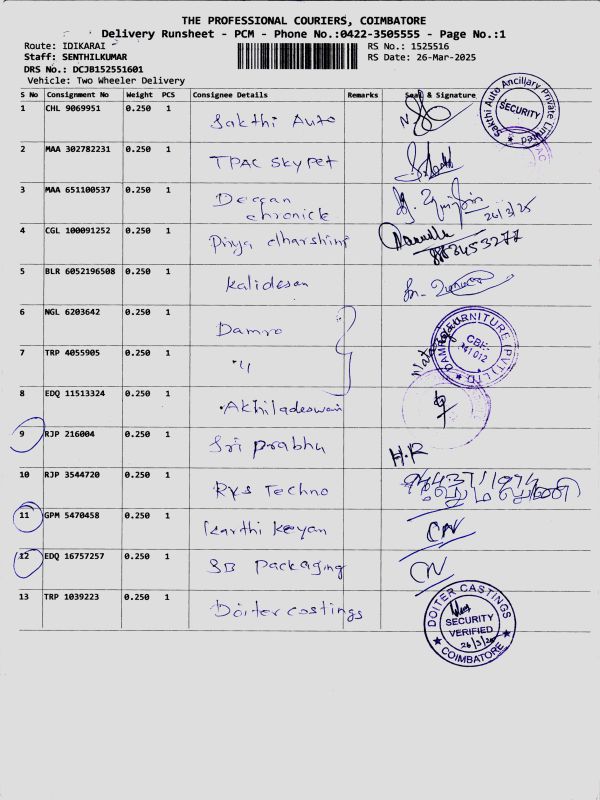 THE PROFESSIONAL COURIERS, COIMBATORE
Delivery Runsheet - PCM - Phone No.:0422-3505555 - Page No.:1
Route: IDIKARAI
RS No.: 1525516
Staff: SENTHILKUMAR
RS Date: 26-Mar-2025
DRS No.: DCJB152551601
Vehicle: Two Wheeler Delivery
S No Consignment No Weight PCS Consignee Details Remarks Seal & Signature
1 CHL 9069951 0.250 1 Sakthi Auto
Sakthi Auto Ancillary Private Limited
SECURITY
2 MAA 302782231 0.250 1 TPAC Skypet
3 MAA 651100537 0.250 1 Deccan
chronick 26/3/25
4 CGL 100091252 0.250 1 Divya dharshini
5 BLR 6052196508 0.250 1 Kalidesan
6 NGL 6203642 0.250 1 Damro
DAMRO FURNITURE (PVT) LTD
CBE-
641 012
7 TRP 4055905 0.250 1 "
8 EDQ 11513324 0.250 1 Akhiladeswari
9 RJP 216004 0.250 1 Sri prabhu H.R
10 RJP 3544720 0.250 1 RVS Techno
11 GPM 5470458 0.250 1 Karthi keyan
12 EDQ 16757257 0.250 1 SB Packaging
13 TRP 1039223 0.250 1 Doiter castings
DOITER CASTINGS
SECURITY
VERIFIED
26/3/25
COIMBATORE